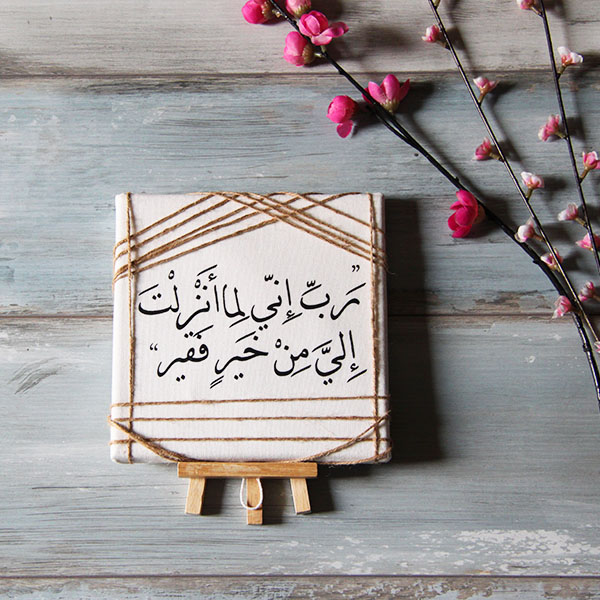 ”رَبِّ إِنّي لِما أَنْزَلْتَ
إِليَّ مِنْ خَيرٍ فَقير“